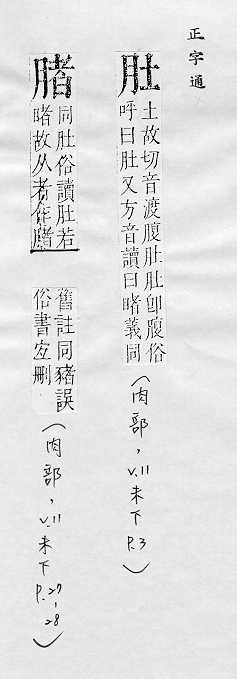 正字通
肚
土故切音渡腹肚肚卽腹俗
呼曰肚又方音讀曰睹義同
(肉部,v.11未下P.3)
䐗
同肚俗讀肚若
睹故从者作䐗
舊註同豬誤
俗書宐刪
(肉部,v.11未下P.27-28)